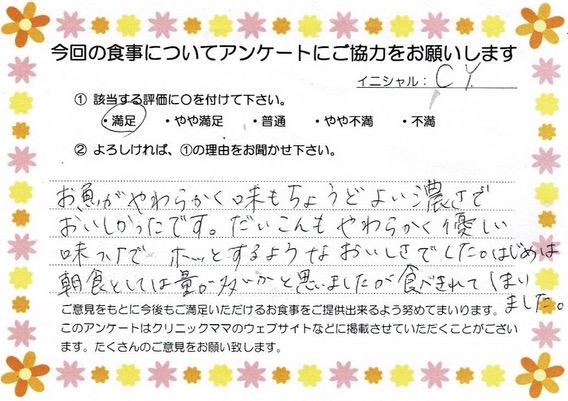 今回の食事についてアンケートにご協力をお願いします
イニシャル： C Y.
① 該当する評価に○を付けて下さい。
・満足 ・やや満足 ・普通 ・やや不満 ・不満
② よろしければ、①の理由をお聞かせ下さい。
お魚がやわらかく味もちょうどよい濃さで
おいしかったです。だいこんもやわらかく優しい
味つけでホッとするようなおいしさでした。はじめは
朝食としては量が多いかと思いましたが食べきれてしまい
ました。
ご意見をもとに今後もご満足いただけるお食事をご提供出来るよう努めてまいります。
このアンケートはクリニックママのウェブサイトなどに掲載させていただくことがござい
ます。たくさんのご意見をお願い致します。